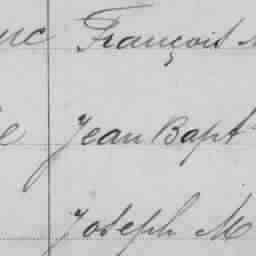 François
Jean Bapt
Joseph M